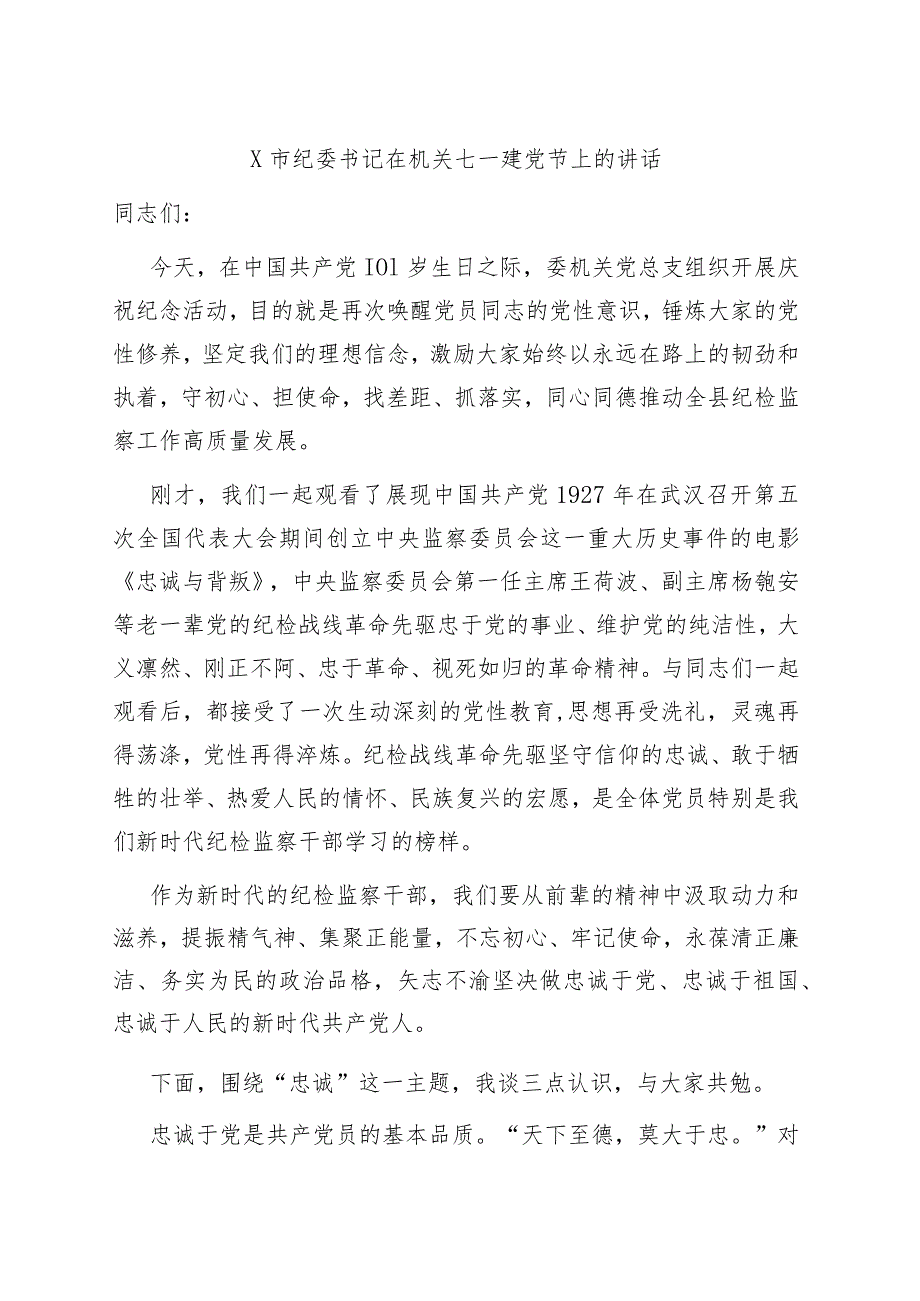 X 市纪委书记在机关七一建党节上的讲话
同志们：
今天，在中国共产党 IOl 岁生日之际，委机关党总支组织开展庆
祝纪念活动，目的就是再次唤醒党员同志的党性意识，锤炼大家的党
性修养，坚定我们的理想信念，激励大家始终以永远在路上的韧劲和
执着，守初心、担使命，找差距、抓落实，同心同德推动全县纪检监
察工作高质量发展。
刚才，我们一起观看了展现中国共产党 1927 年在武汉召开第五
次全国代表大会期间创立中央监察委员会这一重大历史事件的电影
《忠诚与背叛》，中央监察委员会第一任主席王荷波、副主席杨匏安
等老一辈党的纪检战线革命先驱忠于党的事业、维护党的纯洁性，大
义凛然、刚正不阿、忠于革命、视死如归的革命精神。与同志们一起
观看后，都接受了一次生动深刻的党性教育,思想再受洗礼，灵魂再
得荡涤，党性再得淬炼。纪检战线革命先驱坚守信仰的忠诚、敢于牺
牲的壮举、热爱人民的情怀、民族复兴的宏愿，是全体党员特别是我
们新时代纪检监察干部学习的榜样。
作为新时代的纪检监察干部，我们要从前辈的精神中汲取动力和
滋养，提振精气神、集聚正能量，不忘初心、牢记使命，永葆清正廉
洁、务实为民的政治品格，矢志不渝坚决做忠诚于党、忠诚于祖国、
忠诚于人民的新时代共产党人。
下面，围绕“忠诚”这一主题，我谈三点认识，与大家共勉。
忠诚于党是共产党员的基本品质。“天下至德，莫大于忠。”对